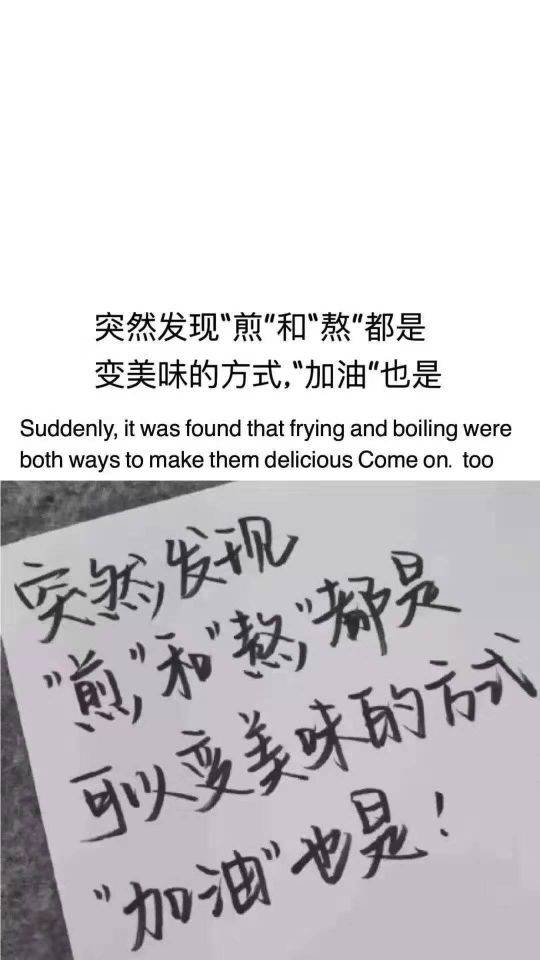 突然发现“煎”和“熬”都是
变美味的方式,“加油”也是
Suddenly, it was found that frying and boiling were
both ways to make them delicious Come on.  too
突然发现
“煎”和“熬”都是
可以变美味的方式
“加油”也是！